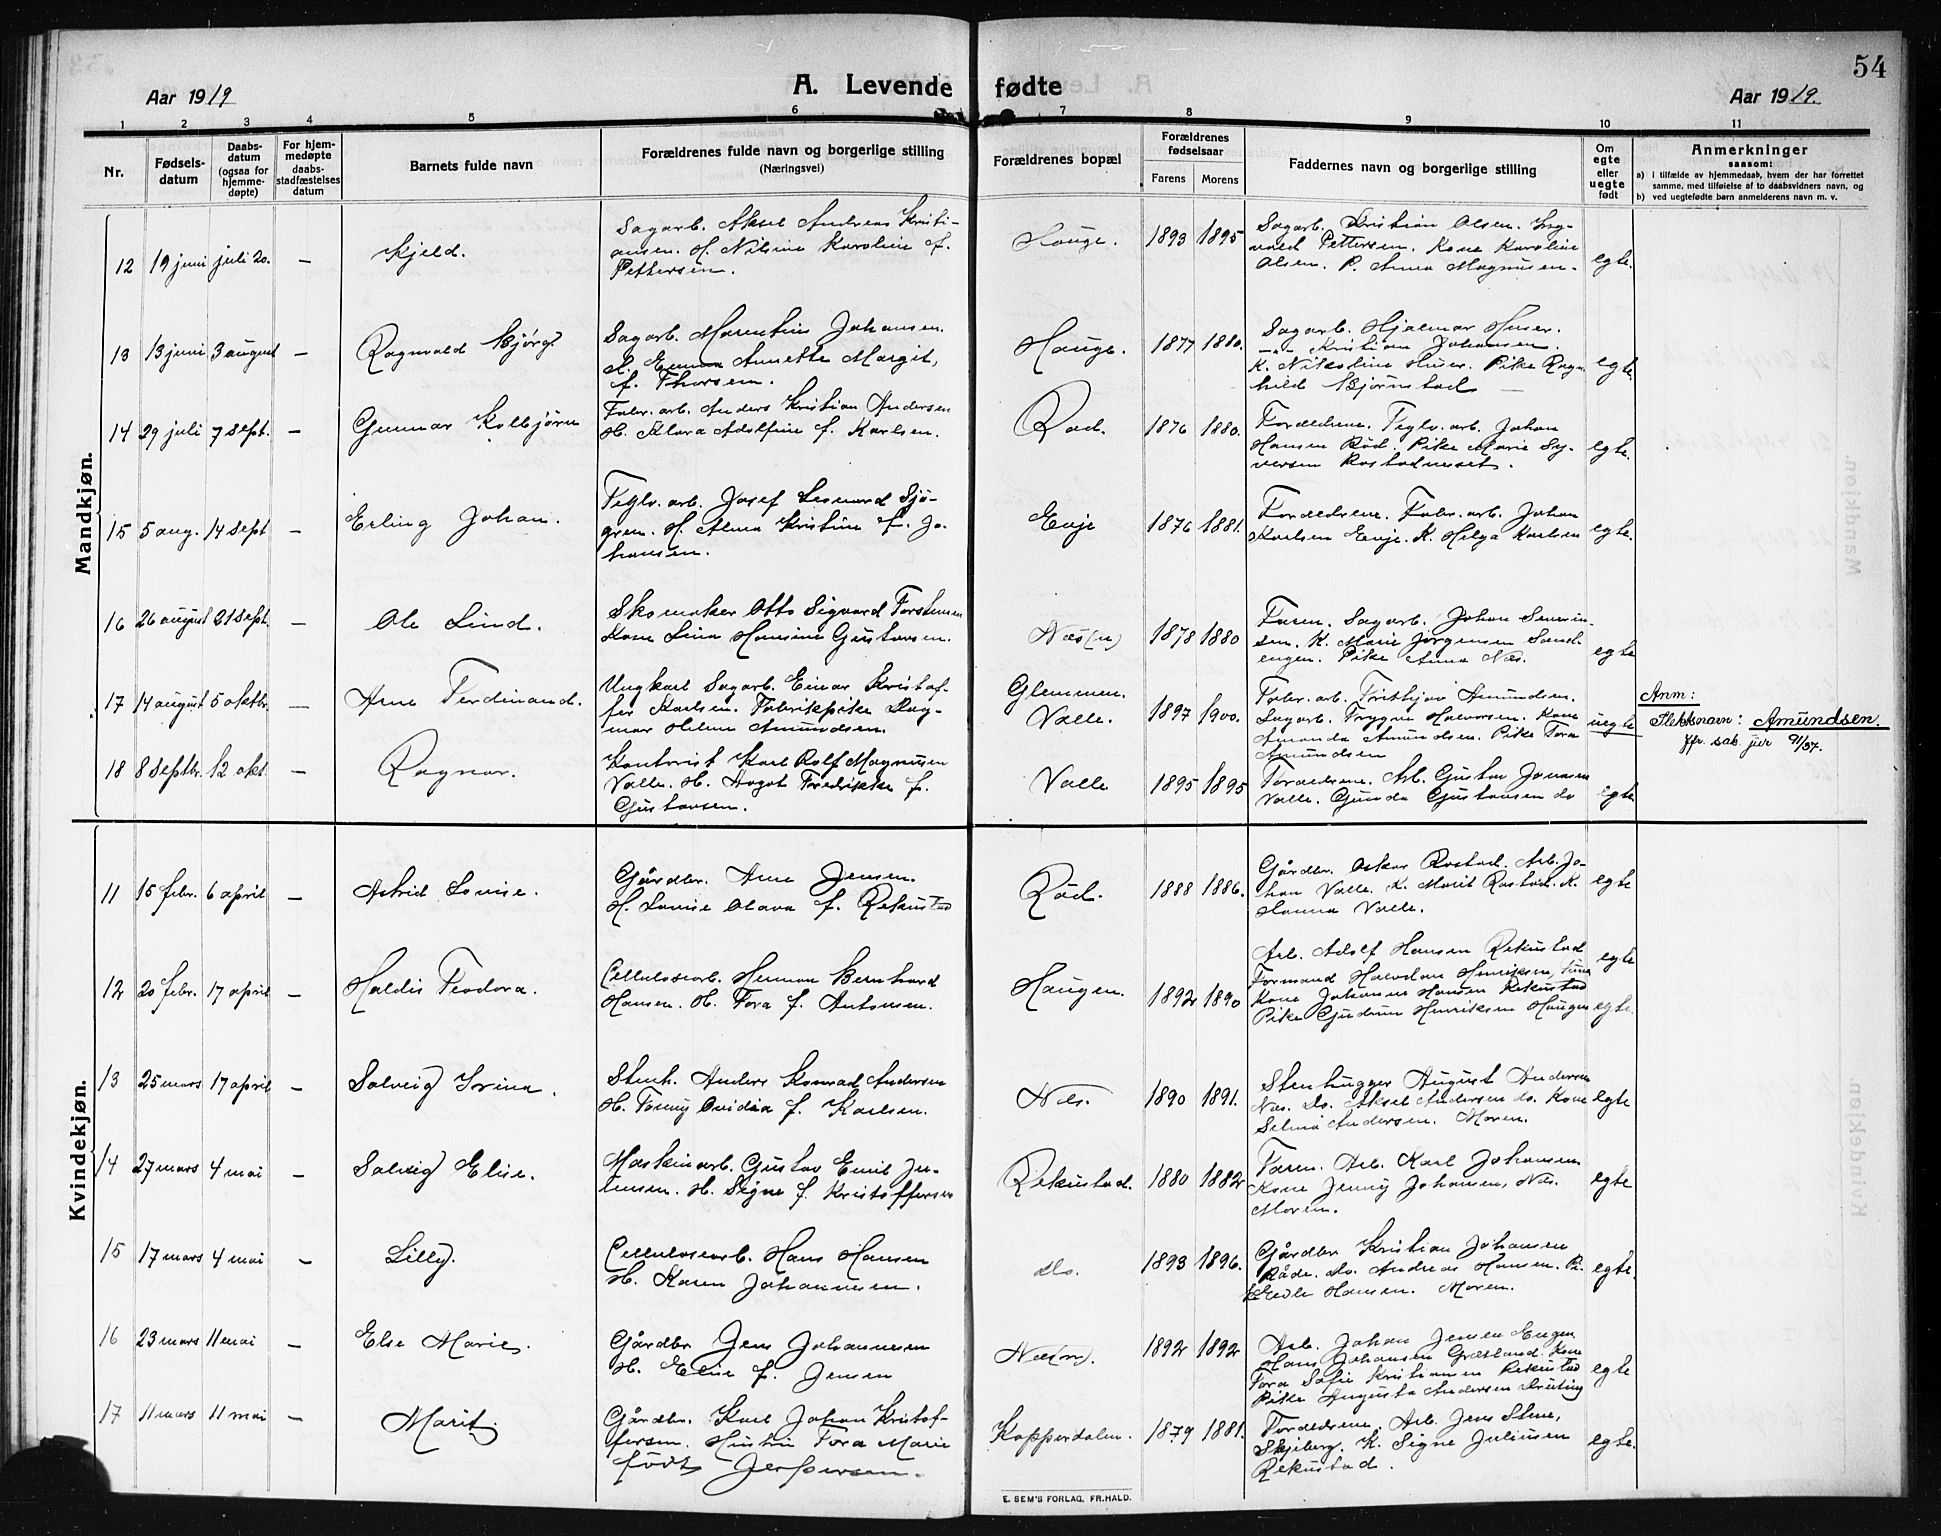 54
A. Levende fødte
Aar 1919
Aar 1919.
1 2 3 4 5 6 7 8 9 10 11
Nr.
Fødsels-
datum
Daabs-
datum
(ogsaa for
hjemme-
døpte)
For hjem-
medøpte
daabs-
stadfæstelses
datum
Barnets fulde navn
Forældrenes fulde navn og borgerlige stilling
(Næringsvei)
Forældrenes bopæl
Forældrenes
fødselsaar
Farens
Morens
Faddernes navn og borgerlige stilling
Om
egte
eller
uegte
født
Anmerkninger
saasom:
a) i tilfælde av hjemmedaab, hvem der har forrettet
samme, med tilføielse af to daabsvidners navn, og
b) ved uegtefødte barn anmelderens navn m. v.
Mandkjøn.
12 19 juni juli 20. — Kjeld.
Sagarb. Aksel Andreas Kristi-
ansen. H. Nilsine Karoline f.
Pettersen.
Hauge. 1893 1895
Sagarb. Kristian Olsen. Ing-
vald Pettersen. Kone Karoline
Olsen. P. Anna Magnusen.
egte.
13 13 juni 3 august — Ragnvald Bjørg.
Sagarb. Marentius Johansen.
H. Emma Annette Margit,
f. Thorsen.
Hauge. 1877 1880.
Sagarb. Hjalmar Huser.
—"— Kristian Johansen.
K. Nikoline Huser. Pike Ragn-
hild Bjørnstad
egte.
14 29 juli 7 sept. — Gunnar Kolbjørn
Fabr. arb. Anders Kristian Andersen
H. Klara Adolfine f. Karlsen.
Rød. 1876 1880.
Forældrene. Teglv. arb. Johan
Hansen Rød. Pike Marie Sy-
versen Rostadneset.
egte.
15 5 aug. 14 sept — Erling Johan.
Teglv. arb. Josef Leonard Sjö-
gren. H. Alma Kristine f. Jo-
hansen.
Evje 1876 1881.
Forældrene. Fabr. arb. Johan
Karlsen Evje. K. Helga Karlsen
egte.
16 26 august 21 sept. — Ole Lind.
Skomaker Otto Sigvard Torstensen
Kone Lina Hansine Gustavsen.
Næs(n) 1878 1880
Faren. Sagarb. Johan Severin-
sen. K. Marie Jørgensen Sand-
engen. Pike Anna Næs.
egte
17 14 august 5 oktbr. — Arne Ferdinand.
Ungkarl Sagarb. Einar Kristof-
fer Karlsen. Fabrikpike Dag-
mar Helene Amundsen.
Glemmen.
Valle. 1897 1900.
Fabr. arb. Fritthjov Amundsen.
Sagarb. Trygve Halvorsen. Kone
Amanda Amundsen. Pike Tora
Amundsen
uegte
Anm:
Slektsnavn: Amundsen.
Jfr. sak. jur 91/37.
18 8 septbr. 12 okt. — Ragnar.
Kontorist Karl Rolf Magnusen
Valle. H. Aagot Fredrikke f.
Gustavsen.
Valle 1895 1895
Forældrene. Arb. Gustav Jonassen
Valle. Gunda Gustavsen do
egte
Kvindekjøn.
11 15 febr. 6 april — Astrid Louise.
Gårdbr. Arne Jensen.
H. Louise Olava f. Rekustad
Rød. 1888 1886.
Gårdbr. Oskar Rostad. Arb. Jo-
han Valle. K. Marit Rostad. K.
Hanna Valle.
egte
12 20 febr. 17 april — Haldis Teodora.
Cellulosearb. Herman Bernhard
Hansen. H. Tora f. Antonsen.
Haugen. 1892 1890
Arb. Adolf Hansen Rekustad
Formand Halvdan Henriksen,
Kone Johanne Hansen Rekustad
Pike Gudrun Henriksen Haugen
egte
egte.
13 25 mars 17 april — Solveig Irina.
Stenh. Anders Konrad Andersen
H. Fanny Ovidia f. Karlsen.
Næs. 1890 1891.
Stenhugger August Andersen
Næs. Do. Aksel Andersen do. Kone
Selma Andersen. Moren.
egte
14 27 mars 4 mai — Solveig Elise.
Maskinarb. Gustav Emil Ju-
liussen. H. Signe f. Kristoffersen
Rekustad. 1880 1882
Faren. Arb. Karl Johansen
Kone Jenny Johansen, Næs.
Moren.
egte
15 17 mars 4 mai — Lilly.
Cellulosearb. Hans Hansen
H. Karen Johannesen.
do. 1893 1896.
Gårdbr Kristian Johansen
Råde. Do. Andreas Hansen. Pi-
ke Edle Hansen. Moren.
egte.
16 23 mars 11 mai — Else Marie.
Gårdbr Jens Johannesen
H. Elise f. Jensen
Næs(n). 1892 1892
Arb. Johan Jensen Engen
Hans Johansen Græsland. Kone
Tora Sofie Kristiansen Rekustad
Pike Augusta Andersen
egte
17 11 mars 11 mai — Marit.
Gårdbr. Karl Johan Kristof-
fersen. Hustru Tora Marie
født Jespersen.
Kopperdalen. 1879 1881.
Forældrene. Arb. Jens Stene,
Skjeberg. K. Signe Juliusen
Rekustad.
egte.
E. SEM'S FORLAG, FR.HALD.